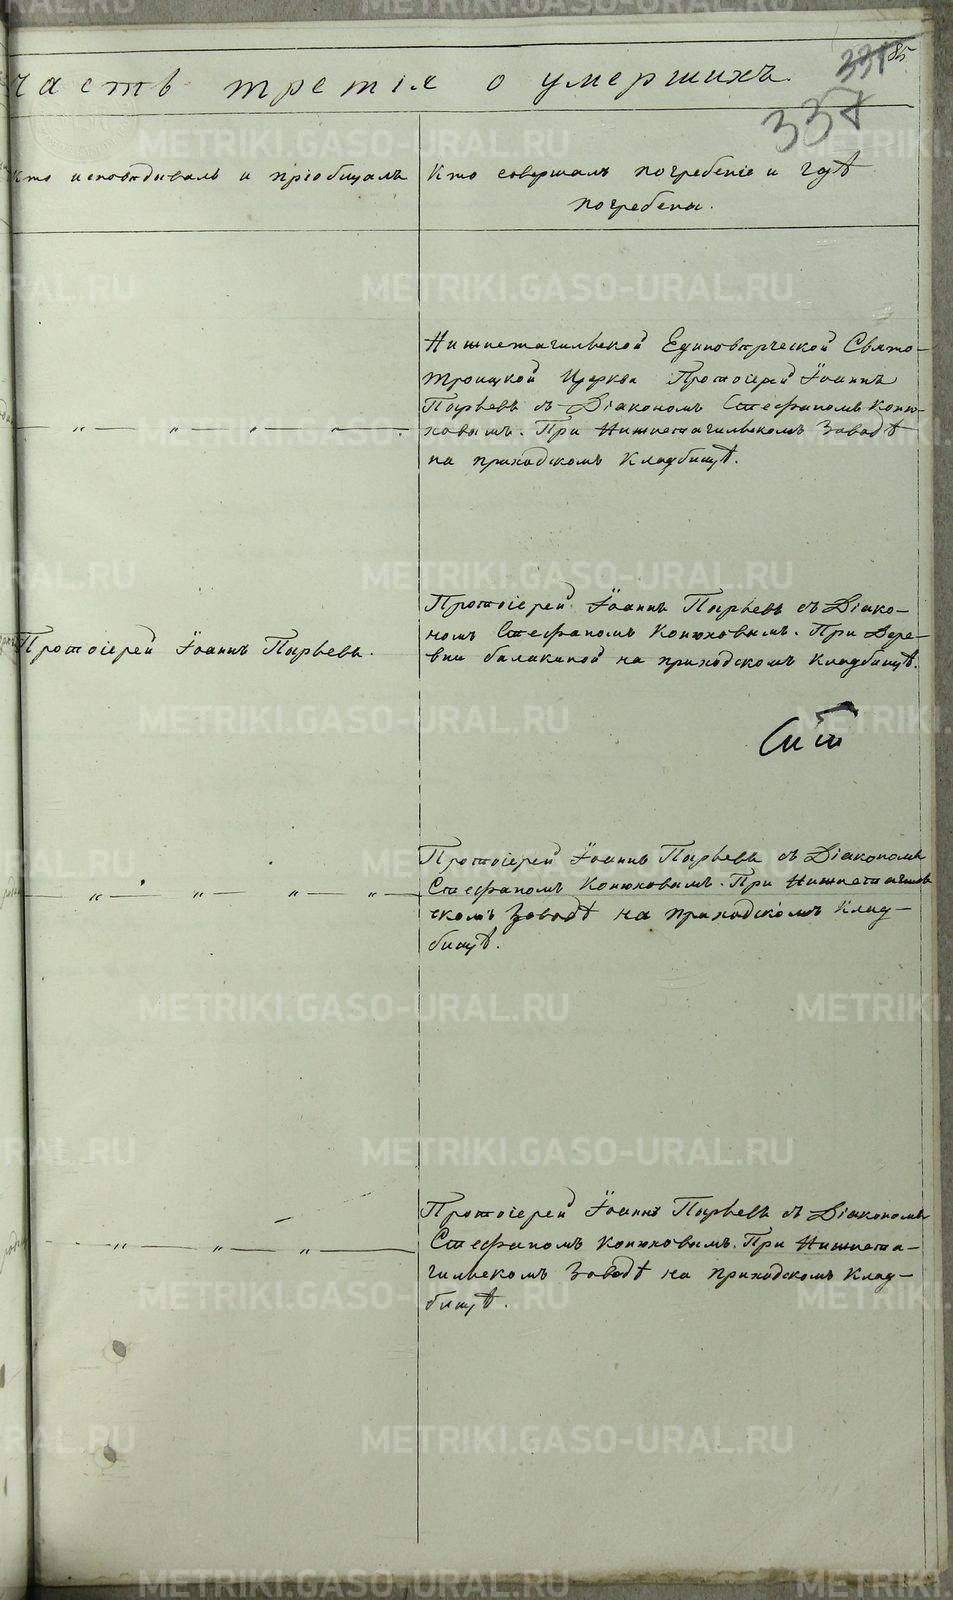 часть третія о умершихъ
85
337
Кто исповѣдывалъ и пріобщалъ
Кто совершалъ погребеніе и гдѣ
погребены.
Нижнетагильской Единовѣрческой Свято-
троицкой Церкви Протоіерей Іоаннъ
Пырьевъ съ Діакономъ Стефаномъ Коню-
ховымъ. При Нижнетагильскомъ Заводѣ
на приходскомъ Кладбищѣ.
Протоіерей Іоаннъ Пырьевъ.
Протоіерей Іоаннъ Пырьевъ съ Діако-
номъ Стефаномъ Конюховымъ. При Дере-
вни балакиной на приходскомъ Кладбищѣ.
Протоіерей Іоаннъ Пырьевъ съ Діакономъ
Стефаномъ Конюховымъ. При Нижнетагиль
скомъ Заводѣ на приходскомъ Клад-
бищѣ.
Протоіерей Іоаннъ Пырьевъ съ Діакономъ
Стефаномъ Конюховымъ. При Нижнета-
гильскомъ Заводѣ на приходскомъ Клад-
бищѣ.
METRIKI.GASO-URAL.RU